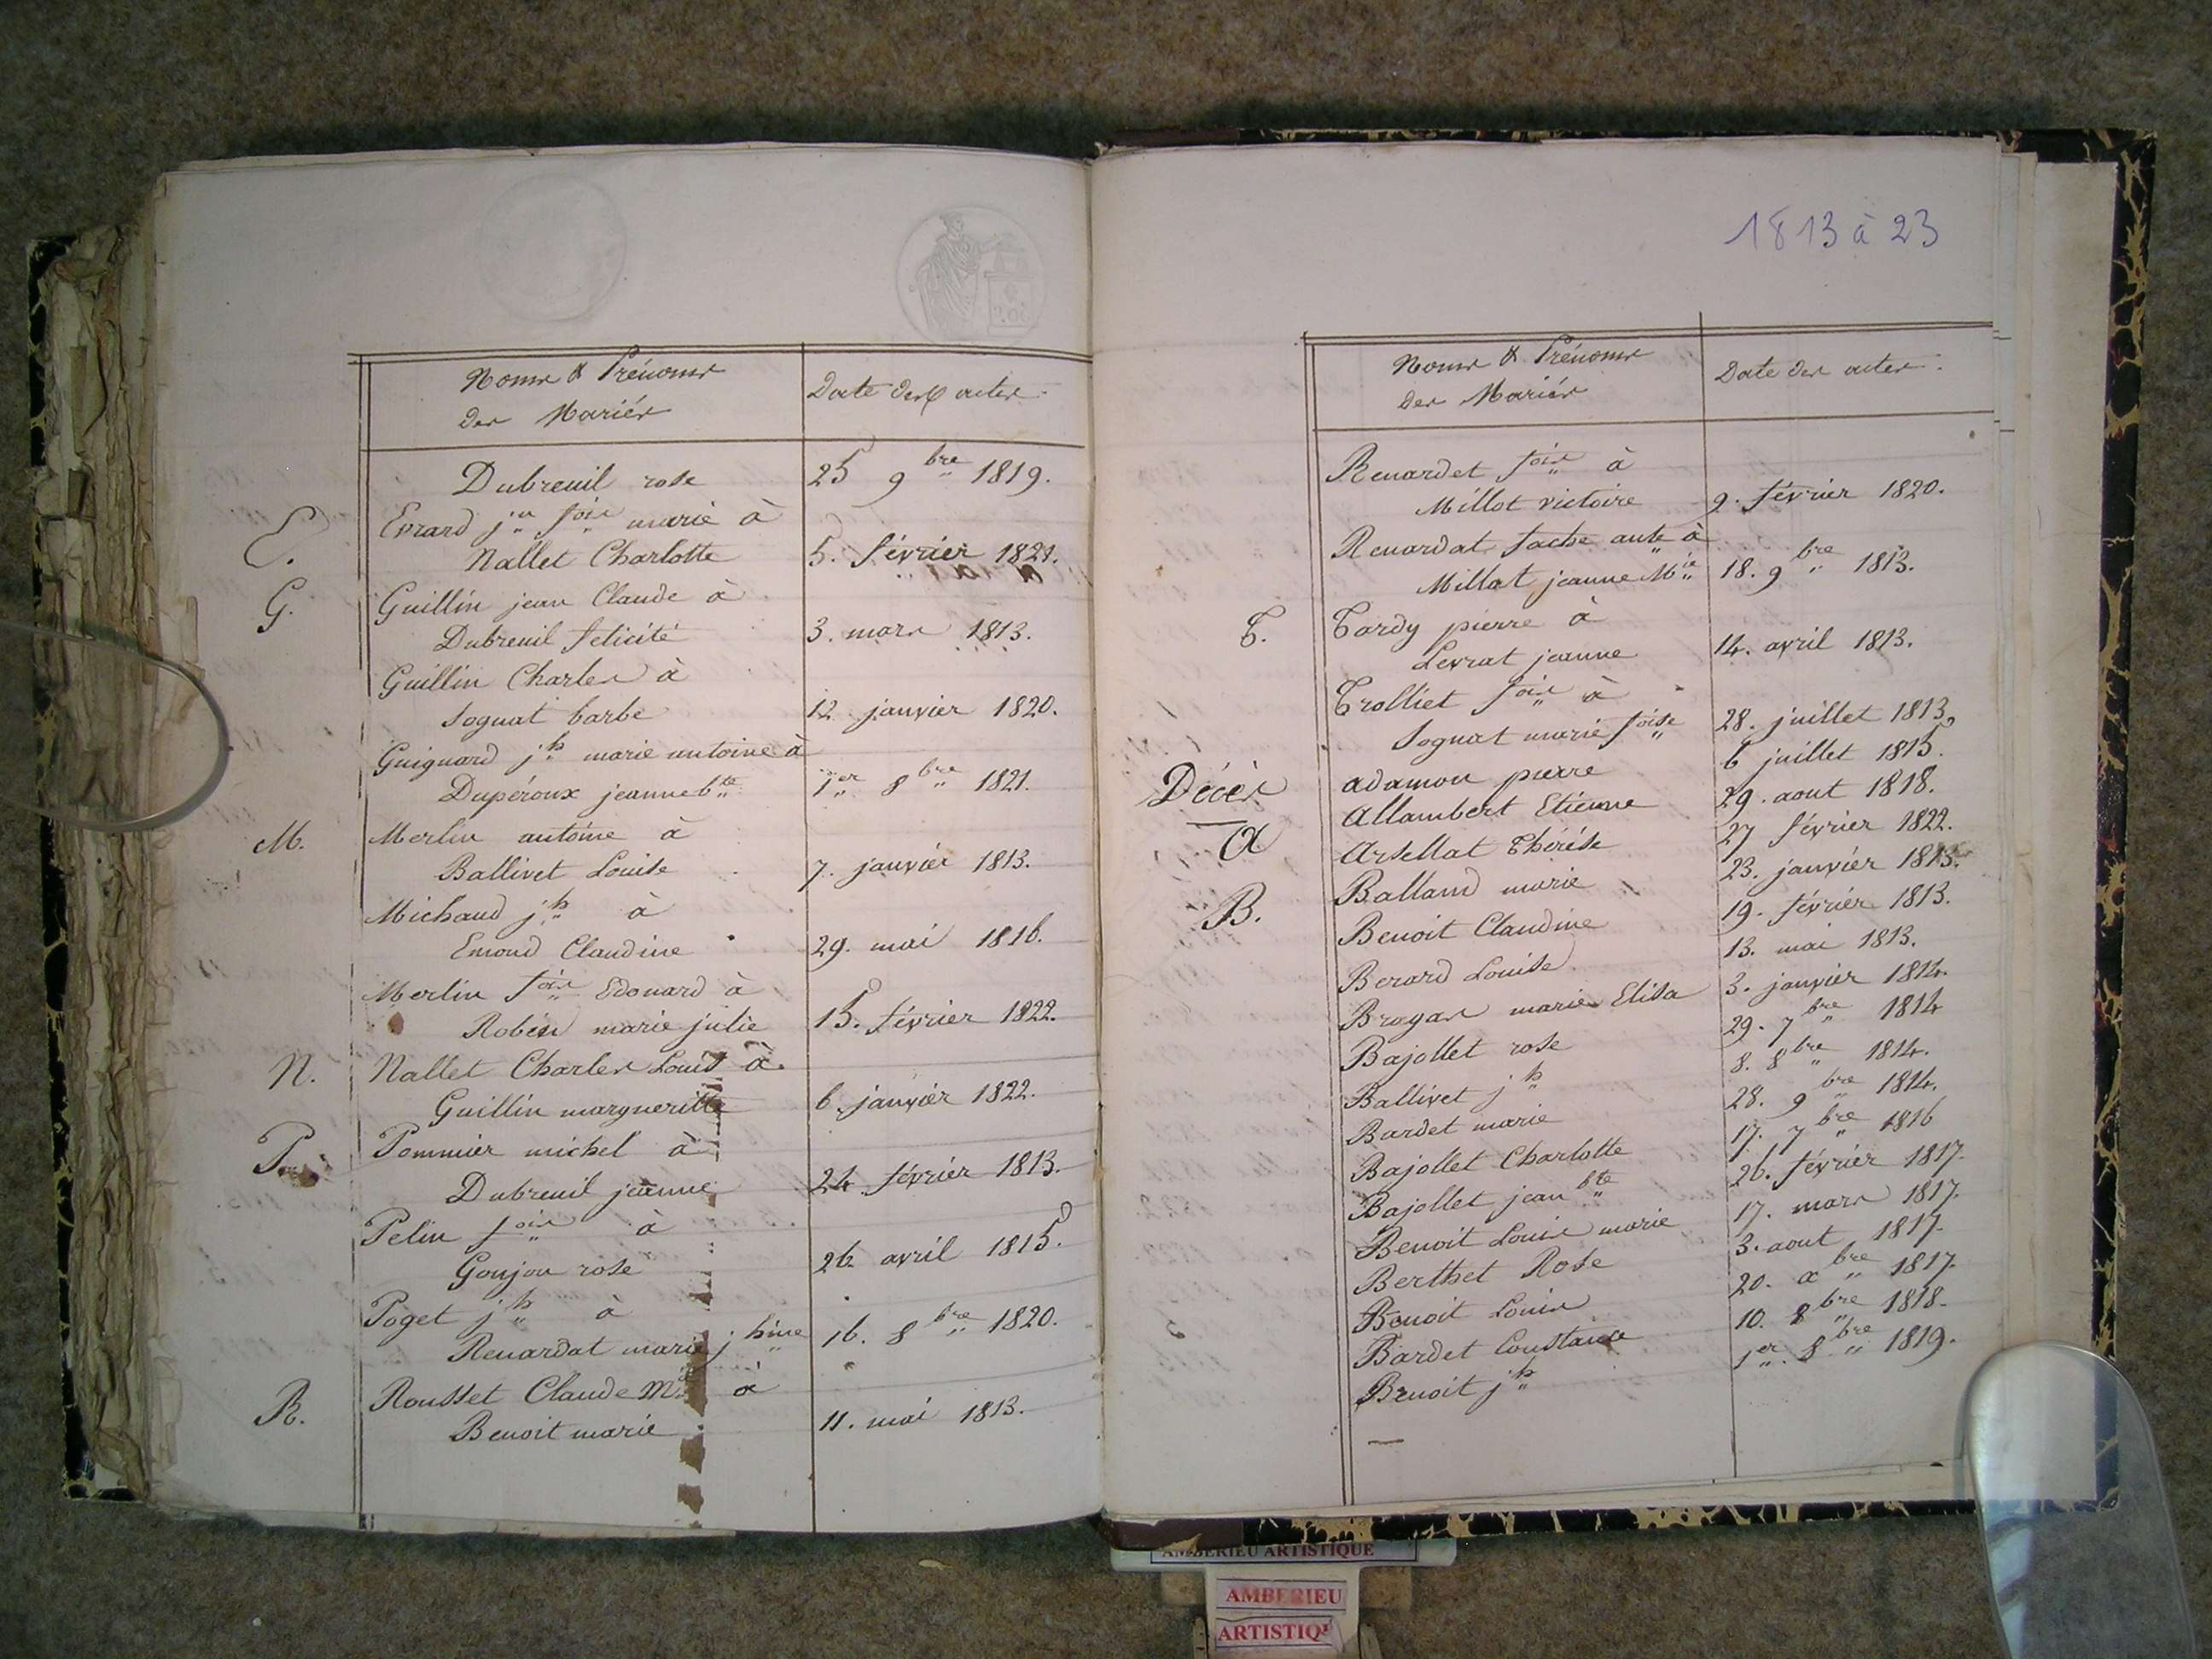 Noms & Prénoms
des Mariés
Date des actes.
Dubreuil rose 25 9bre 1819.
E. Evrard jn fois marie à
Nallet Charlotte 5. février 1821.
G. Guillin jean Claude à
Dubreuil felicité 3. mars 1813.
Guillin Charles à
Sognat barbe 12 janvier 1820.
Guignard jh marie antoine à
Dupéroux jeanne bte 1er 8bre 1821.
M. Merlin antoine à
Ballivet Louise 7. janvier 1813.
Michaud jh à
Emond Claudine 29. mai 1816.
Merlin fois Edouard à
Robin marie julie 15. février 1822.
N. Nallet Charles Louis à
Guillin margueritte 6. janvier 1822.
P. Pommier michel à
Dubreuil jeanne 24 février 1813.
Pelin fois à
Goujon rose 26 avril 1815.
Poget jh à
Renardat marie jhine 16. 8bre 1820.
R. Rousset Claude Mie à
Benoit marie 11. mai 1813.
1813 à 23
Noms & Prénoms
des Mariés
Date des actes.
Renardet fois à
Millot victoire 9. février 1820.
Renardat tache ante à
Millat jeanne Mie 18. 9bre 1813.
T. Tardy pierre à
Levrat jeanne 14. avril 1813.
Trolliet fois à
Sognat marie foise 28. juillet 1813.
Décès adamon pierre 6 juillet 1815.
A Allambert Etienne 29. aout 1818.
Arsellat Thérèse 27 février 1822.
B. Balland marie 23. janvier 1813.
Benoit Claudine 19. février 1813.
Berard Louise 13. mai 1813.
Bragas marie Elisa 3. janvier 1814.
Bajollet rose 29. 7bre 1814
Ballivet jh 8. 8bre 1814.
Bardet marie 28. 9bre 1814.
Bajollet Charlotte 17. 7bre 1816
Bajollet jean bte 26. février 1817.
Benoit Louis marie 17. mars 1817.
Berthet Rose 3. aout 1817.
Benoit Louis 20. xbre 1817.
Bardet Constance 10. 8bre 1818.
Benoit jh 1er. 8bre 1819.
AMBERIEU ARTISTIQUE
AMBERIEU
ARTISTIQ